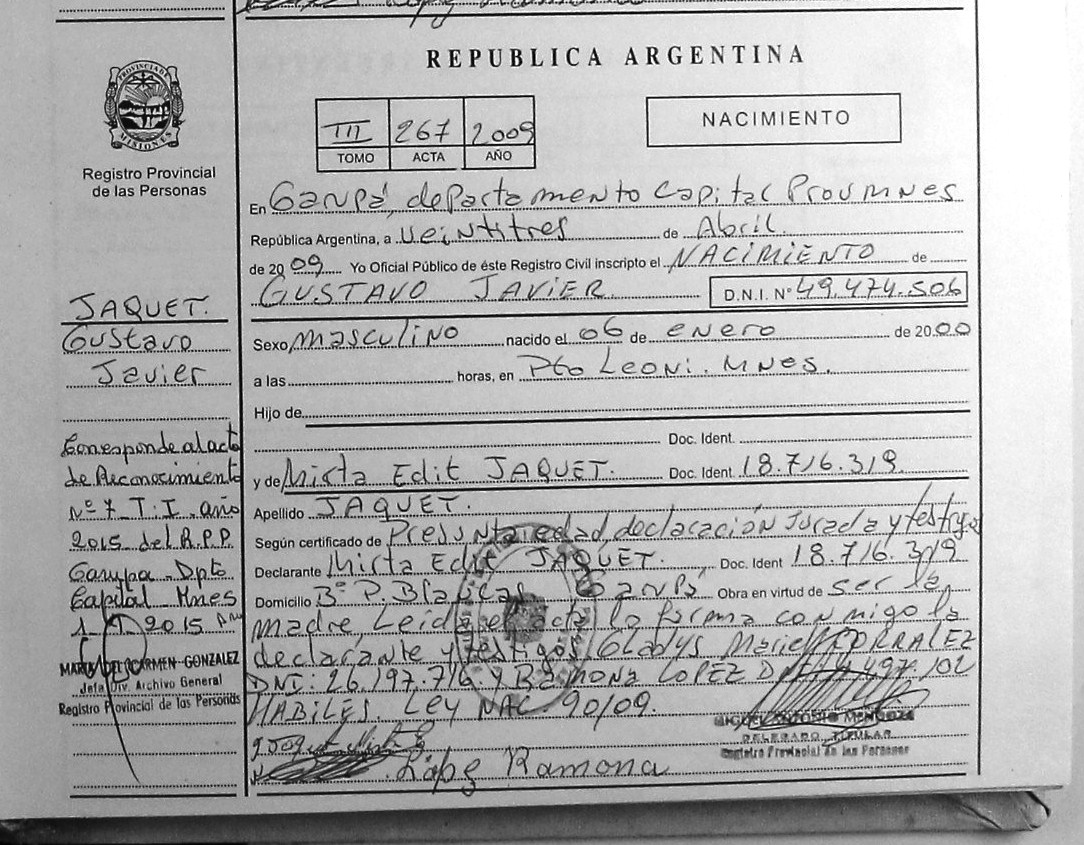 REPUBLICA ARGENTINA
PROVINCIA DE MISIONES
Registro Provincial
de las Personas
III 267 2009
TOMO ACTA AÑO
NACIMIENTO
En Garupá, departamento Capital Prov MNES
República Argentina, a veintitres de Abril.
de 2009 Yo Oficial Público de éste Registro Civil inscripto el NACIMIENTO de
GUSTAVO JAVIER. D.N.I. Nº 49.474.506
Sexo masculino nacido el 06 de enero de 20.00
a las horas, en Pto Leoni. MNES.
Hijo de
Doc. Ident.
y de Mirta Edit JAQUET. Doc. Ident. 18.716.319
Apellido JAQUET.
Según certificado de Presunta edad, declaración Jurada y testigo
Declarante Mirta Edit JAQUET. Doc. Ident 18.716.319
Domicilio Bº P. Obra en virtud de ser la
madre, Leida el acta lo firma conmigo la
declarante y testigos, Gladys Mariel
DNI: 26.197.716 y Ramona LOPEZ
HABILES. Ley NAC 90/09.
MIGUEL ANTONIO MENDOZA
DELEGADO TITULAR
Registro Provincial de las Personas
López Ramona
JAQUET.
Gustavo
Javier
Corresponde al acta
de Reconocimiento
Nº 7 T: I. año
2015 del R.P.P.
Garupa Dpto
Capital Mnes
2015
MARIA DEL CARMEN GONZALEZ
Jefa Div. Archivo General
Registro Provincial de las Personas